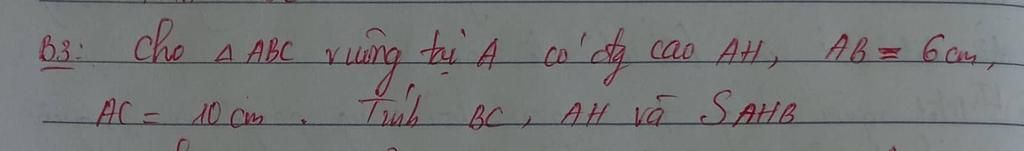 B3: Cho △ ABC vuông tại A có đg cao AH, AB = 6cm,
AC = 10 cm . Tính BC, AH và SAHB